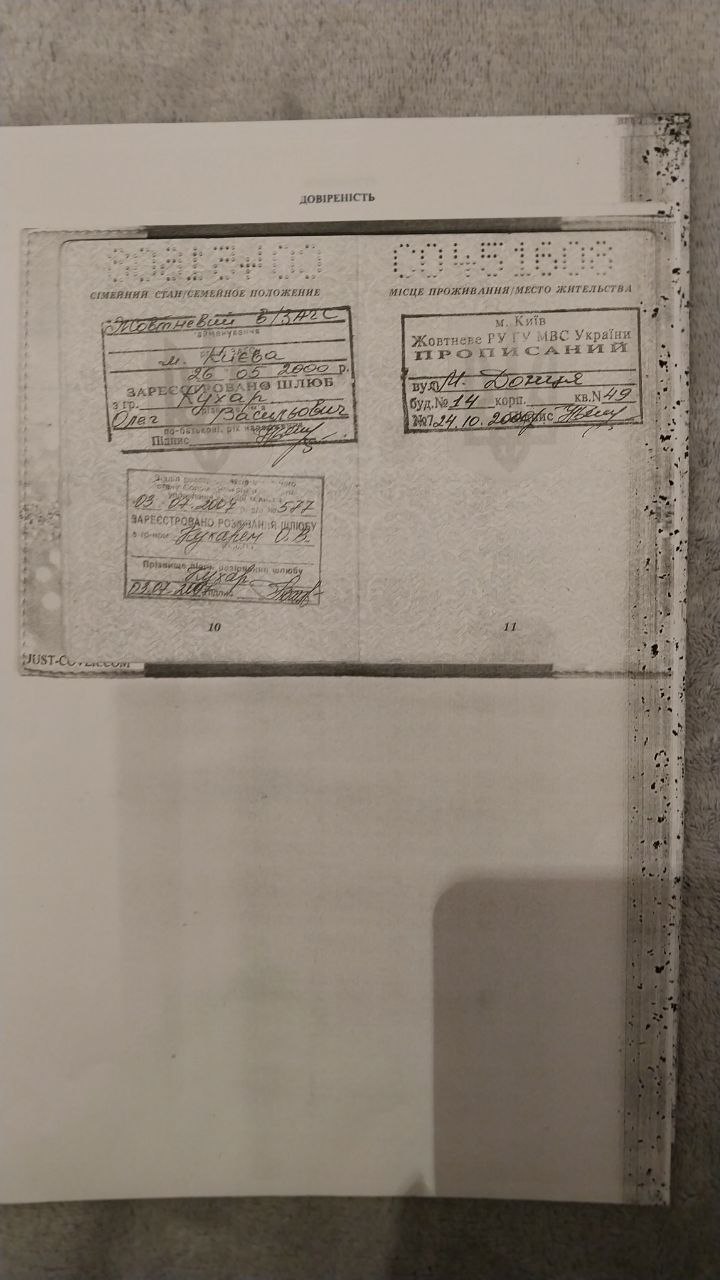 ДОВІРЕНІСТЬ
СО451608
СІМЕЙНИЙ СТАН/СЕМЕЙНОЕ ПОЛОЖЕНИЕ
Жовтневий в/ЗАГС
м. Києва
26 05 2000 р.
ЗАРЕЄСТРОВАНО ШЛЮБ
з гр. Кухар
Олег Васильович
по-батькові, рік народження
Підпис
03.07.2007 577
ЗАРЕЄСТРОВАНО РОЗІРВАННЯ ШЛЮБУ
з гр-ном Кухарем О.В.
Прізвище після розірвання шлюбу
Кухар
03.07.2007 Підпис
10
JUST-COVER.COM
МІСЦЕ ПРОЖИВАННЯ/МЕСТО ЖИТЕЛЬСТВА
м. Київ
Жовтневе РУ ГУ МВС України
ПРОПИСАНИЙ
вул. М. Донця
буд.№ 14 корп. кв.N 49
24.10.
11